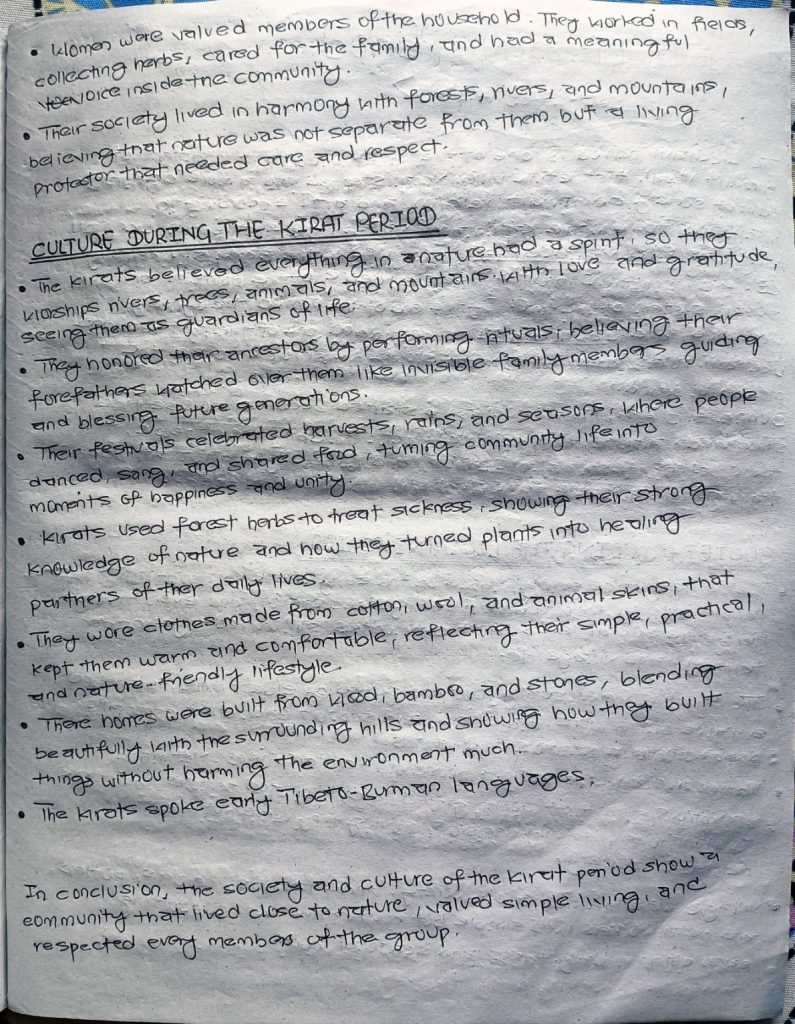 • Women were valued members of the household. They worked in fields,
collecting herbs, cared for the family, and had a meaningful
voice inside the community.
• Their society lived in harmony with forests, rivers, and mountains,
believing that nature was not separate from them but a living
protector that needed care and respect.
CULTURE DURING THE KIRAT PERIOD
• The kirats believed everything in nature had a spirit, so they
worships rivers, trees, animals, and mountains with love and gratitude,
seeing them as guardians of life.
• They honored their ancestors by performing rituals, believing their
forefathers watched over them like invisible family members guiding
and blessing future generations.
• Their festivals celebrated harvests, rains, and seasons, where people
danced, sang, and shared food, turning community life into
moments of happiness and unity.
• Kirats used forest herbs to treat sickness, showing their strong
knowledge of nature and how they turned plants into healing
partners of ther daily lives.
• They wore clothes made from cotton, wool, and animal skins, that
kept them warm and comfortable, reflecting their simple, practical,
and nature-friendly lifestyle.
• There homes were built from wood, bamboo, and stones, blending
beautifully with the surrounding hills and showing how they built
things without harming the environment much.
• The kirats spoke early Tibeto-Burman languages.
In conclusion, the society and culture of the kirat period show a
community that lived close to nature, valued simple living, and
respected every members of the group.